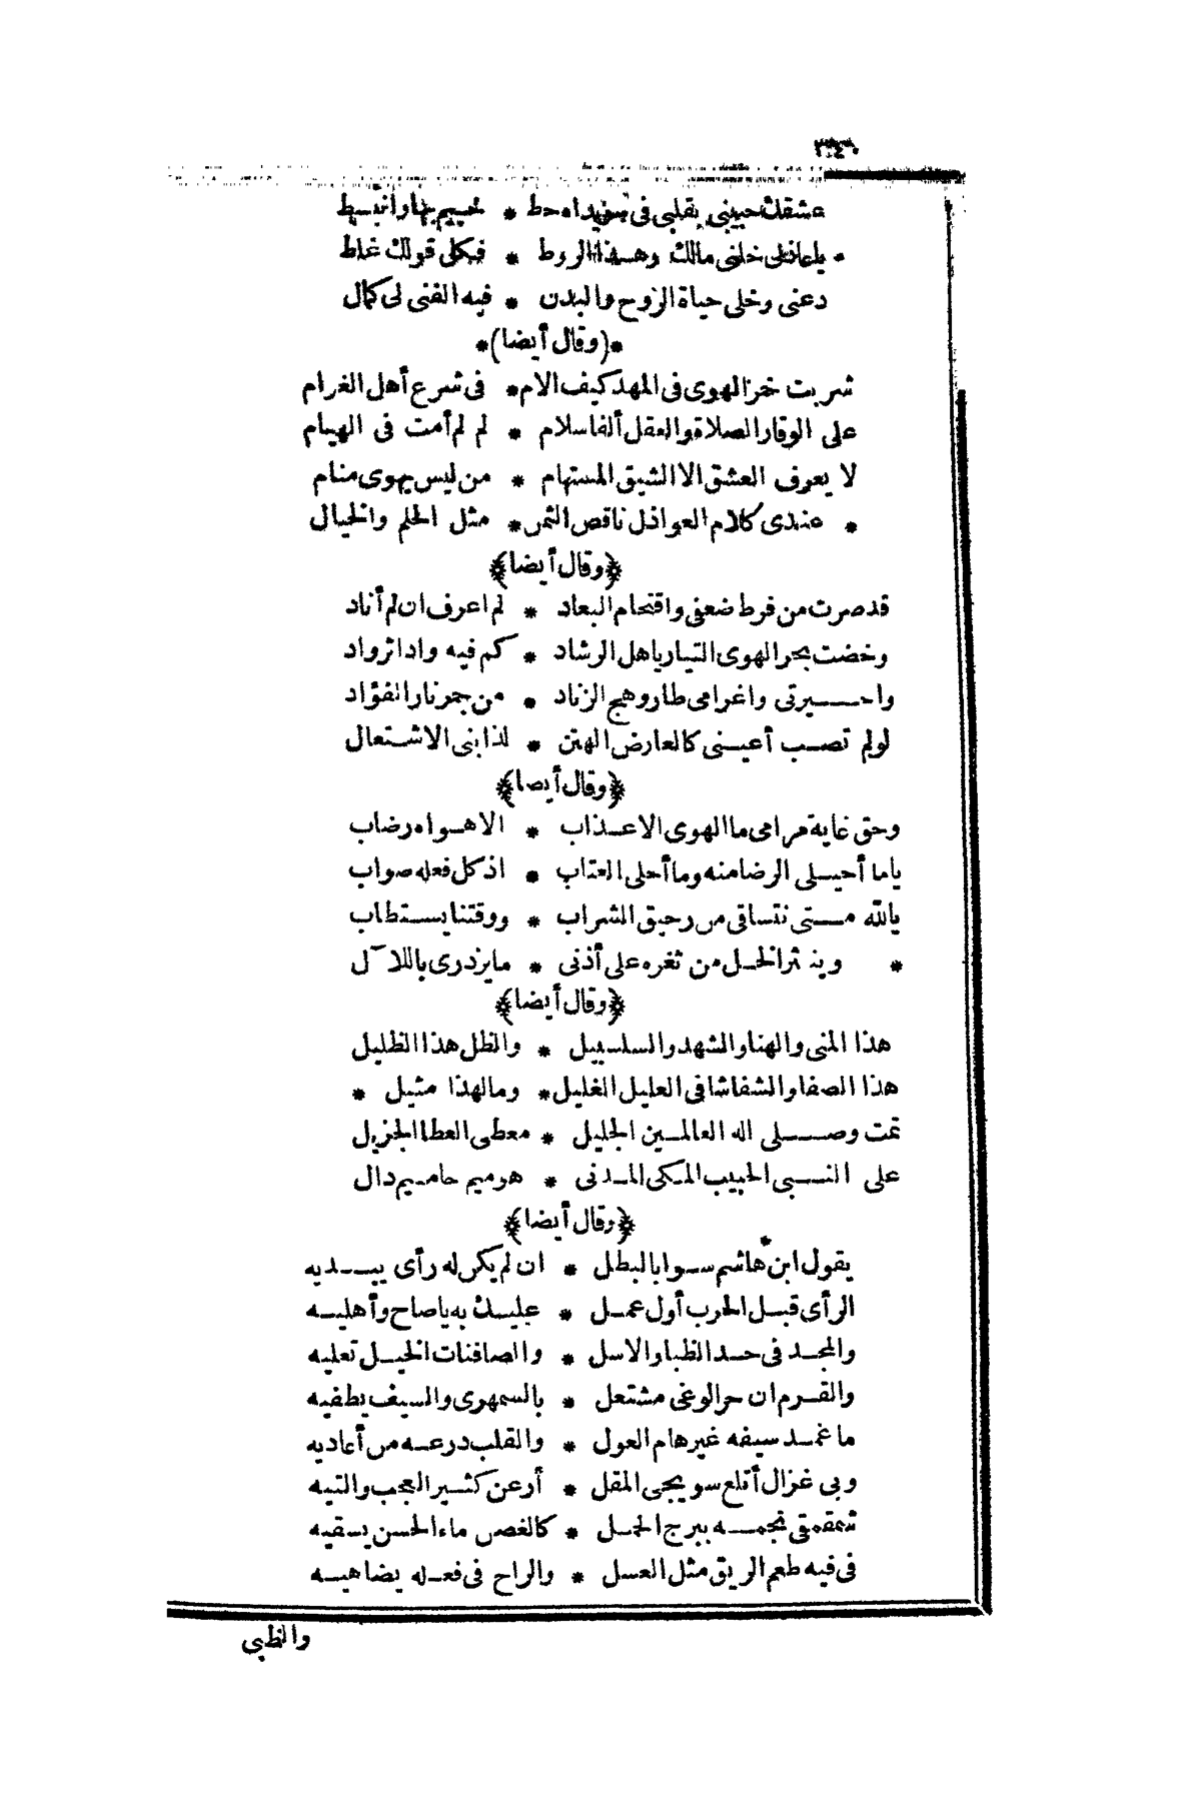 عشقك حبيبى بقلبى فى سويداه حط * خيم بها وانبسط
* ياعاذلى خلنى مالك وهذا الروط * فكل قولك غلط
دعنى وخلى حياة الروح والبدن * فيه الفنى لى كمال
*(وقال أيضا)*
شربت خمر الهوى فى المهد كيف الام * فى شرع أهل الغرام
على الوقار الصلاة والعقل ألفا سلام * لم لم أمت فى الهيام
لا يعرف العشق الا الشيق المستهام * من ليس يهوى منام
* عندى كلام العواذل ناقص الثمن * مثل الحلم والخيال
﴿وقال أيضا﴾
قد صرت من فرط ضعفى واقتحام البعاد * لم اعرف ان لم أناد
وخضت بحر الهوى التيار ياهل الرشاد * كم فيه واد اثر واد
واحــيرتى واغرامى طار وهج الزناد * من جمر نار الفؤاد
لولم تصب أعيـنى كالعارض الهتن * لذابنى الاشتعال
﴿وقال أيضا﴾
وحق غاية مرامى ما الهوى الاعـذاب * الا هـواه رضاب
ياما أحيـلى الرضامنه وما أحلى العتاب * اذ كل فعله صواب
يالله مـتى نتساقى من رحيق الشراب * ووقتنا يسـتطاب
* وينثر الخـل من ثغره على أذنى * مايزدرى باللاآل
﴿وقال أيضا﴾
هذا المنى والهنا والشهد والسلسبيل * والظل هذا الظليل
هذا الصفا والشفا شافى العليل الغليل * ومالهذا مثيل *
تمت وصــلى اله العالمـين الجليل * معطى العطا الجزيل
على النـبى الحبيب المـكى المـدنى * هو ميم حامـيم دال
﴿وقال أيضا﴾
يقول ابن هاشم سـوا بالبطل * ان لم يكن له رأى يبـديه
الرأى قبـل الحرب أول عمـل * عليـك به ياصاح وأهليـه
والمجـد فى حـد الظبا والاسل * والصافنات الخيـل تعليه
والقـرم ان حر الوغى مشتعل * بالسمهرى والسيف يطفيه
ما غمـد سيفه غير هام العول * والقلب درعـه من أعاديه
وبى غزال أتلع سويجى المقل * أرعن كثـير العجب والتيه
شمقمقى نجمــه ببرج الحمـل * كالغصن ماء الحسن يسقيه
فى فيه طعم الريق مثل العسل * والراح فى فعـله يضاهيـه
والظبى